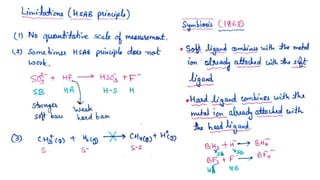 Limitations (HSAB principle)
(1) No quantitative scale of measurement.
(2) Sometimes HSAB principle does not
work.
SO₃²⁻ + HF ⟶ HSO₃⁻ + F⁻
SB HA H-S H
Stronger
soft base
weak
hard base
(3) CH₃⁺(g) + H₂(g) ⟶ CH₄(g) + H⁺(g)
S S- S-S
Symbiosis (1968)
• Soft ligand combines with the metal
ion already attached with the soft
ligand
• Hard ligand combines with the
metal ion already attached with
the hard ligand.
BH₃ + H⁻ ⟶ BH₄⁻
SB
BF₃ + F⁻ ⟶ BF₄⁻
HB HB